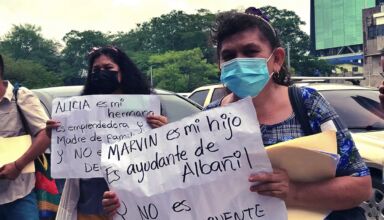 ALICIA es mi
hermana
es emprendedora y
Madre de Fami
y NO e
DE
MARVIN es mi hijo
Es ayudante de
Albañil
y NO es